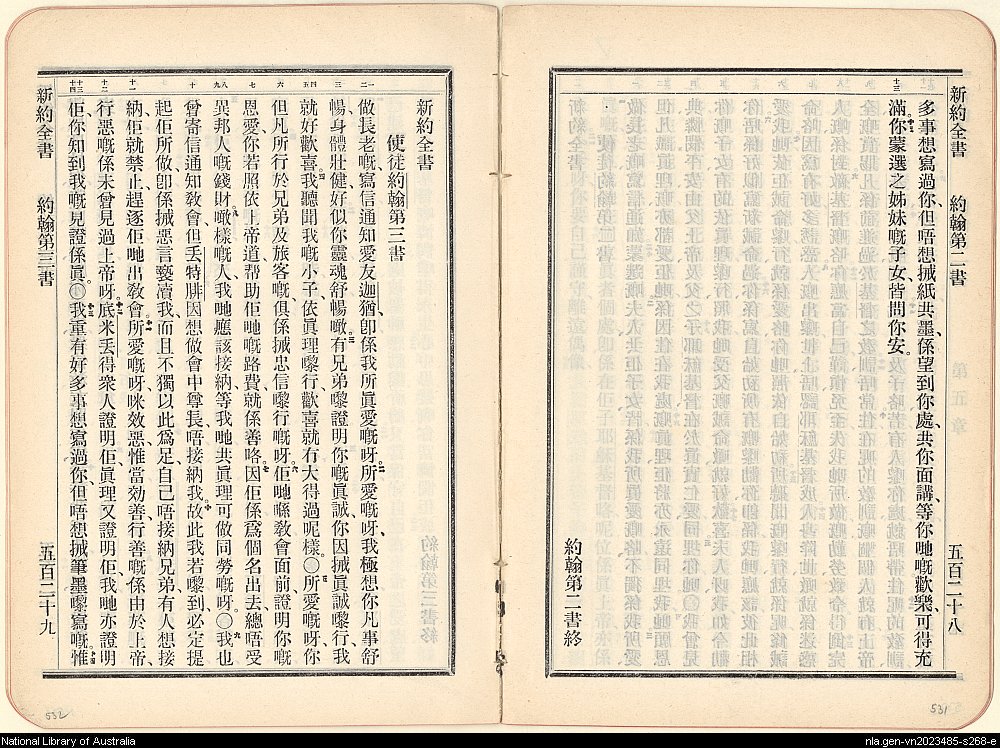 新約全書 約翰第二書 五百二十八
十三
多事想寫過你、但唔想搣紙共墨、係望到你處、共你面講、等你哋嘅歡樂、可得充
滿、你蒙選之姊妹嘅子女、皆問你安。
約翰第二書終
新約全書
使徒約翰第三書
一二 三 四五 六 七 八九 十 十一 十二 十三十四
做長老嘅寫信通知愛友迦猶、卽係我所眞愛嘅呀、所愛嘅呀、我極想你凡事舒
暢、身體壯健、好似你靈魂舒暢噉。有兄弟嚟證明你嘅眞誠、你因搣眞誠嚟行、我
就好歡喜。我聽聞我嘅小子依眞理嚟行、歡喜就冇大得過呢樣。〇所愛嘅呀、你
但凡所行於兄弟及旅客嘅、俱係搣忠信嚟行嘅呀。佢哋喺敎會面前證明你嘅
恩愛、你若照依上帝道帮助佢哋嘅路費、就係善咯。因佢係爲個名出去、總唔受
異邦人嘅錢財、噉樣嘅人、我哋應該接納、等我哋共眞理可做同勞嘅呀。〇我也
曾寄信通知敎會、但丟特腓因想做會中尊長、唔接納我。故此我若嚟到、必定提
起佢所做、卽係搣惡言褻瀆我、而且不獨以此爲足、自己唔接納兄弟、有人想接
納、佢就禁止、趕逐佢哋出敎會。所愛嘅呀、咪效惡、惟當効善、行善嘅係由於上帝、
行惡嘅係未曾見過上帝呀。底米丟得衆人證明、佢眞理又證明佢、我哋亦證明
佢、你知到我嘅見證係眞。〇我重有好多事想寫過你、但唔想搣筆墨嚟寫嘅。惟
新約全書 約翰第三書 五百二十九
532
531
National Library of Australia
nla.gen-vn2023485-s268-e